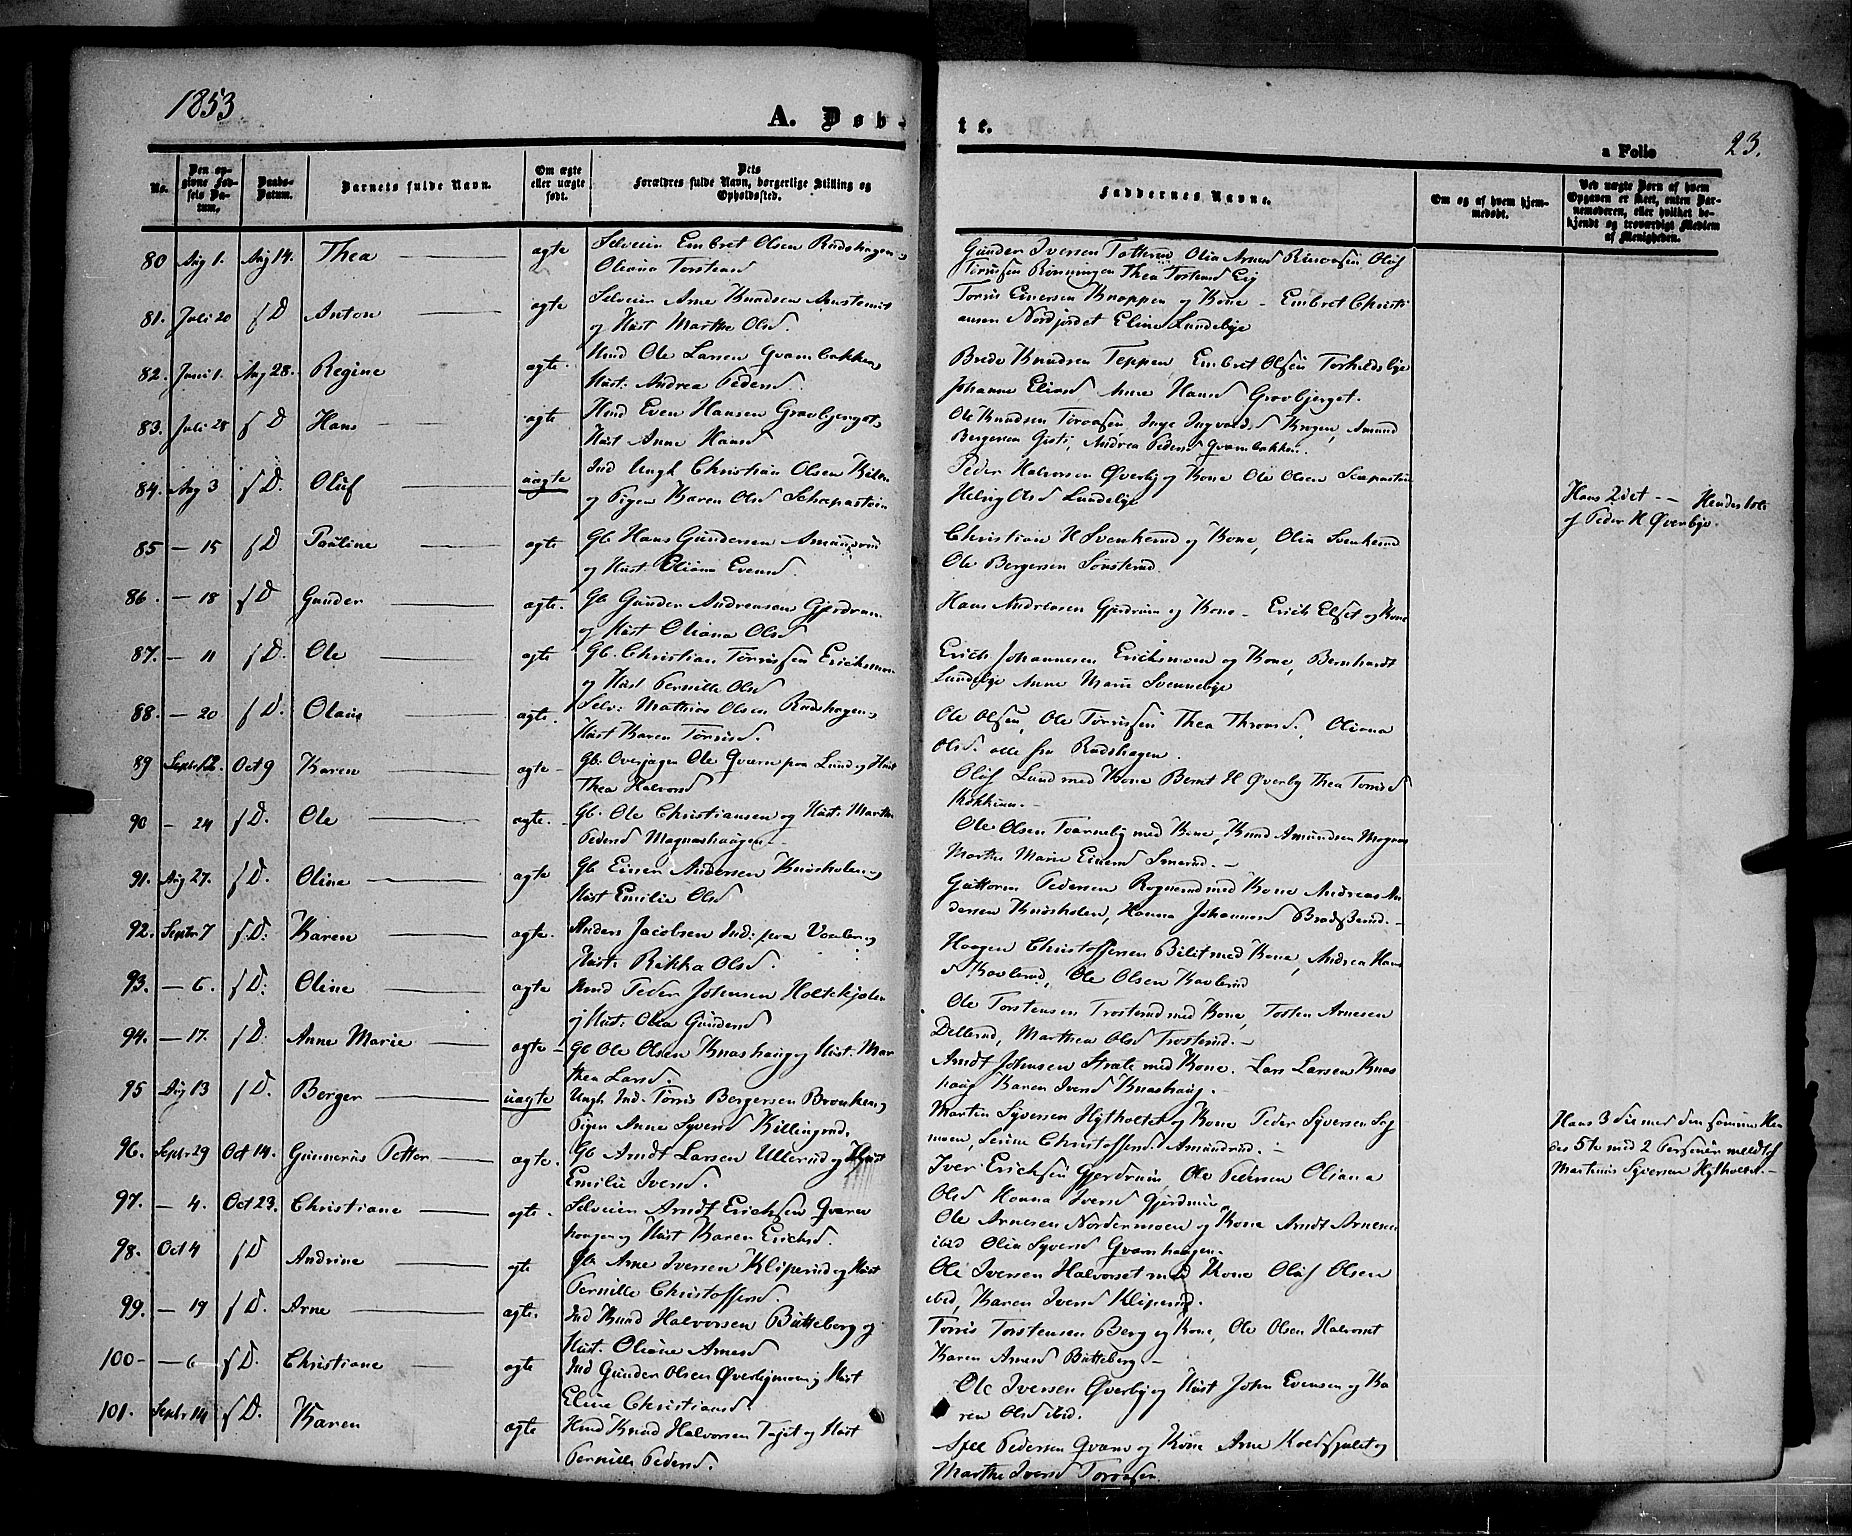 1853
A. Døb-
te.
a Folio
23.
No.
Den opgivne Fødsels Datum.
Daabs-Datum.
Barnets fulde Navn.
Om ægte eller uægte født.
Dets Forældres fulde Navn, borgerlige Stilling og Opholdssted.
Faddernes Navne.
Om og af hvem hjemmedøbt.
Ved uægte Børn af hvem Opgaven er skeet, enten Barnemoderen, eller hvilket bekjendt og troværdigt Medlem af Menigheden.
80 Aug 1. Aug 14. Thea ægte Selveier Embret Olsen Rødshagen
Oliana Torstensd
Gunder Iversen Olia Arnesd Oluf
Rønningen Thea Torstensd Eig
81. Juli 20 f D Anton ægte Selveier Arne Knudsen
og Hust Marthe Olsd.
Torris Einersen Knappen og Kone - Embret Christi
ansen Nordjordet Eline Lundebye
82. Juni 1. Aug 28. Regine ægte. Hmd Ole Larsen Qvernbakken
Hust. Andrea Pedersd.
Brede Knudsen Teppen Embret Olsen Torkildsbye
Johanne Eliasd, Anne Hansd Gravbjerget.
83. Juli 28 f D Hans ægte Hmd Even Hansen Gravbjerget,
Hust Anne Hansd
Ole Knudsen Toraasen, Inge Ingvaldsd Krogen, Amund
Bergersen Andrea Pedersd Qvernbakken.
84. Aug 3 f D. Oluf uægte Ind Ungk Christian Olsen
og Pigen Karen Olsd
Peder Halvorsen Øverby og Kone Ole Olsen
Helvig Olsd Lundebye
Hans 2det -- Hendes 1ste
af Peder H Øverbye.
85 - 15 f D Pauline ægte Gb. Hans Gundersen Amundrud
og Hust. Oliana Evensd.
Christian H Svenkerud og Kone, Olia Svenkerud
Ole Bergersen Sønsterud.
86. - 18 f D Gunder ægte. Gb Gunder Andreasen Gjerdrum
og Hust Oliana Olsd
Hans Andreasen Gjerdrum og Kone - Erick Elset og Kone
87. - 11 f D. Ole ægte Gb. Christian Torrissen Ericksmoen
og Hust Pernille Olsd
Erick Johannesen Ericksmoen og Kone, Bernhardt
Lundebye Anne Marie Svennebye
88. - 20 f D. Olaus ægte. Selv: Mathias Olsen Rødshagen
Hust Karen Torrisd.
Ole Olsen, Ole Torrissen Thea Thronsd. Oliana
Olsd. alle fra Rødshagen.
89 Septbr 12. Oct 9 Karen ægte - Gb. Overjæger Ole Qvern paa Lund og Hust
Thea Halvorsd
Oluf Lund med Kone Bernt H Øverby Thea Torrisd
90 - 24 f D. Ole ægte. - Gb. Ole Christiansen og Hust. Marthe
Pedersd Magnashaugen -
Ole Olsen Tvarneby med Kone, Knud Amundsen
Marthe Marie Einersd Smerud. -
91. Aug 27. f D. Oline ægte Gb Einer Andersen Knøsholen og
Hust Emilie Olsd
Guttorm Pedersen Rognerud med Kone Andreas An
dersen Knøsholen, Hanna Johannesd Bredesserud. -
92. Septbr 7 f D. Karen ægte. Anders Jacobsen Ind: paa Vaaler og
Hust. Rikka Olsd.
Haagen Christoffersen Bilit med Kone, Andrea Hans
d Kavlerud, Ole Olsen Kavlerud
93. - 6. f D: Oline ægte Hmd Peder Johnsen Holtekjølen
og Hust: Olea Gundersd
Ole Torstensen Trosterud med Kone, Tosten Arnesen
Dellerud, Marthea Olsd Trosterud. -
94. - 17. f D. Anne Marie ægte - Gb Ole Olsen Knashaug og Hust. Mar
thea Larsd.
Arndt Johnsen Strate med Kone. Lars Larsen Knas
haug Karen Iversd Knashaug.
95 Aug 13 f D. Berger uægte Ungk. Ind. Torris Bergersen Brauken og
Pigen Anne Syversd Killingrud.
Martin Syversen Hytholtet og Kone Peder Syversen Sag
moen, Lenine Christoffersd Amundrud. -
Hans 3die med den samme Hen
des 5te med 2 Personer meldt af
Martinus Syversen Hytholtet. -
96. Septbr 29 Oct 14. Gunnerius Petter ægte. Gb Arndt Larsen Ullerud og Hust
Emilie Iversd.
Iver Ericksen Gjerdrum, Ole Pedersen Oliana
Olsd Hanna Iversd Gjerdrum
97. - 4. Oct 23. Christiane ægte. Selveier Arndt Ericksen Qvern
haugen og Hust Karen Ericksd.
Ole Arnesen Nordermoen og Kone Arndt Arnesen
ibid Olia Syversd Qvernhaugen.
98. Oct 4 f D Andrine ægte Gb. Arne Iversen Kliperud og Hust
Pernille Christoffersd.
Ole Iversen Halvorset med Kone Oluf Olsen
ibid, Karen Iversd Kliperud.
99. - 19 f D. Arne ægte. Ind Knud Halvorsen Butteberg og
Hust. Oliane Arnesd
Torris Torstensen Berg og Kone, Ole Olsen Halvorset
Karen Arnesd Butteberg -
100 - - 6 f D. Christiane ægte Ind Gunder Olsen Øverbymoen og Hust
Eline Christiansd.
Ole Iversen Øverby og Hust John Evensen og Ka
ren Olsd ibid.
101. Septbr 14 f D. Karen ægte Hmd Knud Halvorsen og Hust
Pernille Pedersd.
Pedersen Qvern og Kone Arne og
Marthe Iversd Toraasen